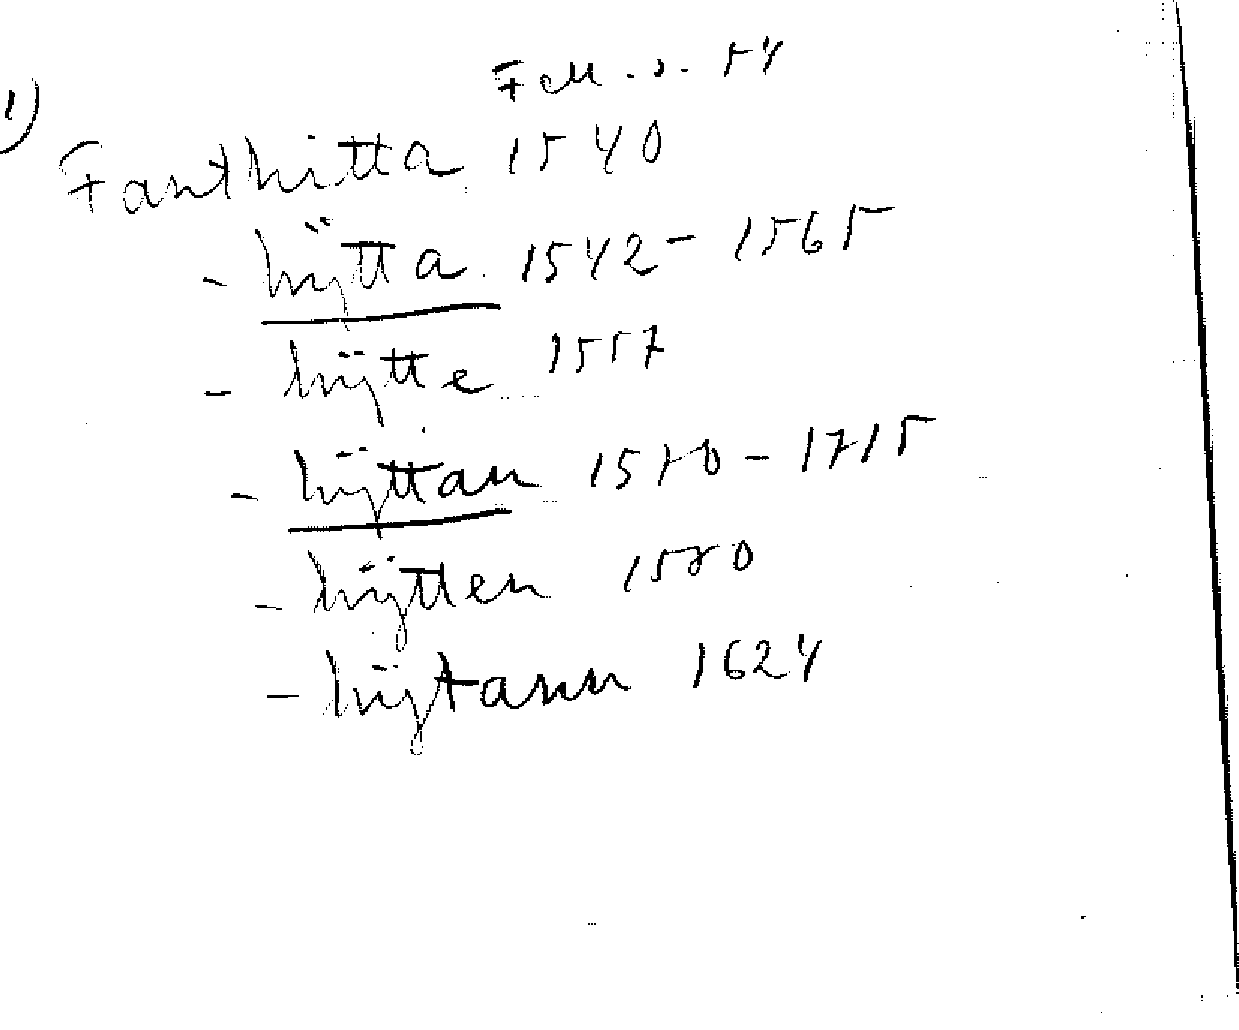 FCM. s. 54
1)
Fanthitta 1540
- hÿtta 1542 - 1565
- hÿtte 1557
- hÿttan 1570 - 1715
- hÿtten 1580
- hÿtann 1624